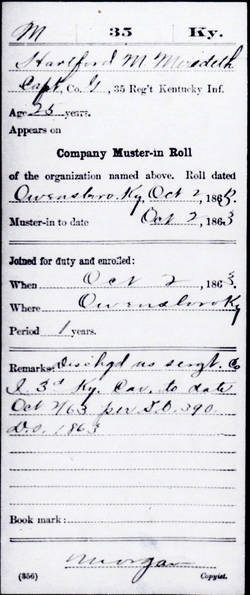 M 35 Ky.
Hartford M Meredith
Capt., Co. G, 35 Reg't Kentucky Inf.
Age 25 years.
Appears on
Company Muster-in Roll
of the organization named above. Roll dated
Owensboro Ky, Oct 2, 1863.
Muster-in to date Oct 2, 1863
Joined for duty and enrolled:
When Oct 2, 1863.
Where Owensboro Ky
Period 1 years.
Remarks: Dischgd as sergt. Co
I. 3d Ky. Cav. to date
Oct 2/63 per S.O. 390
D.O. 1863
Book mark:
Morgan
(356) Copyist.